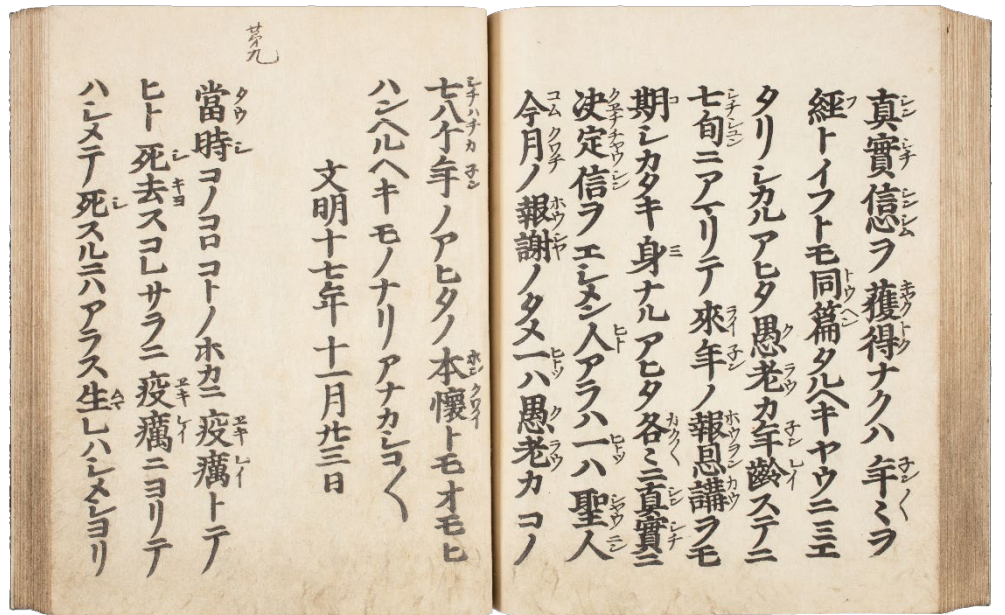 真實信心ヲ獲得ナクハ年〻ヲ
經トイフトモ同篇タルヘキヤウニミエ
タリシカルアヒタ愚老カ年齡ステニ
七旬ニアマリテ來年ノ報恩講ヲモ
期シカタキ身ナルアヒタ各〻ニ真實ニ
决定信ヲエシメン人アラハ一ハ聖人
今月ノ報謝ノタメ一ハ愚老カコノ
七八ケ年ノアヒタノ本懷トモオモヒ
ハンヘルヘキモノナリアナカシコ〱
文明十七年十一月廿三日
第九
當時コノコロコトノホカニ疫癘トテ
ヒト死去スコレサラニ疫癘ニヨリテ
ハシメテ死スルニハアラス生レハシメシヨリ